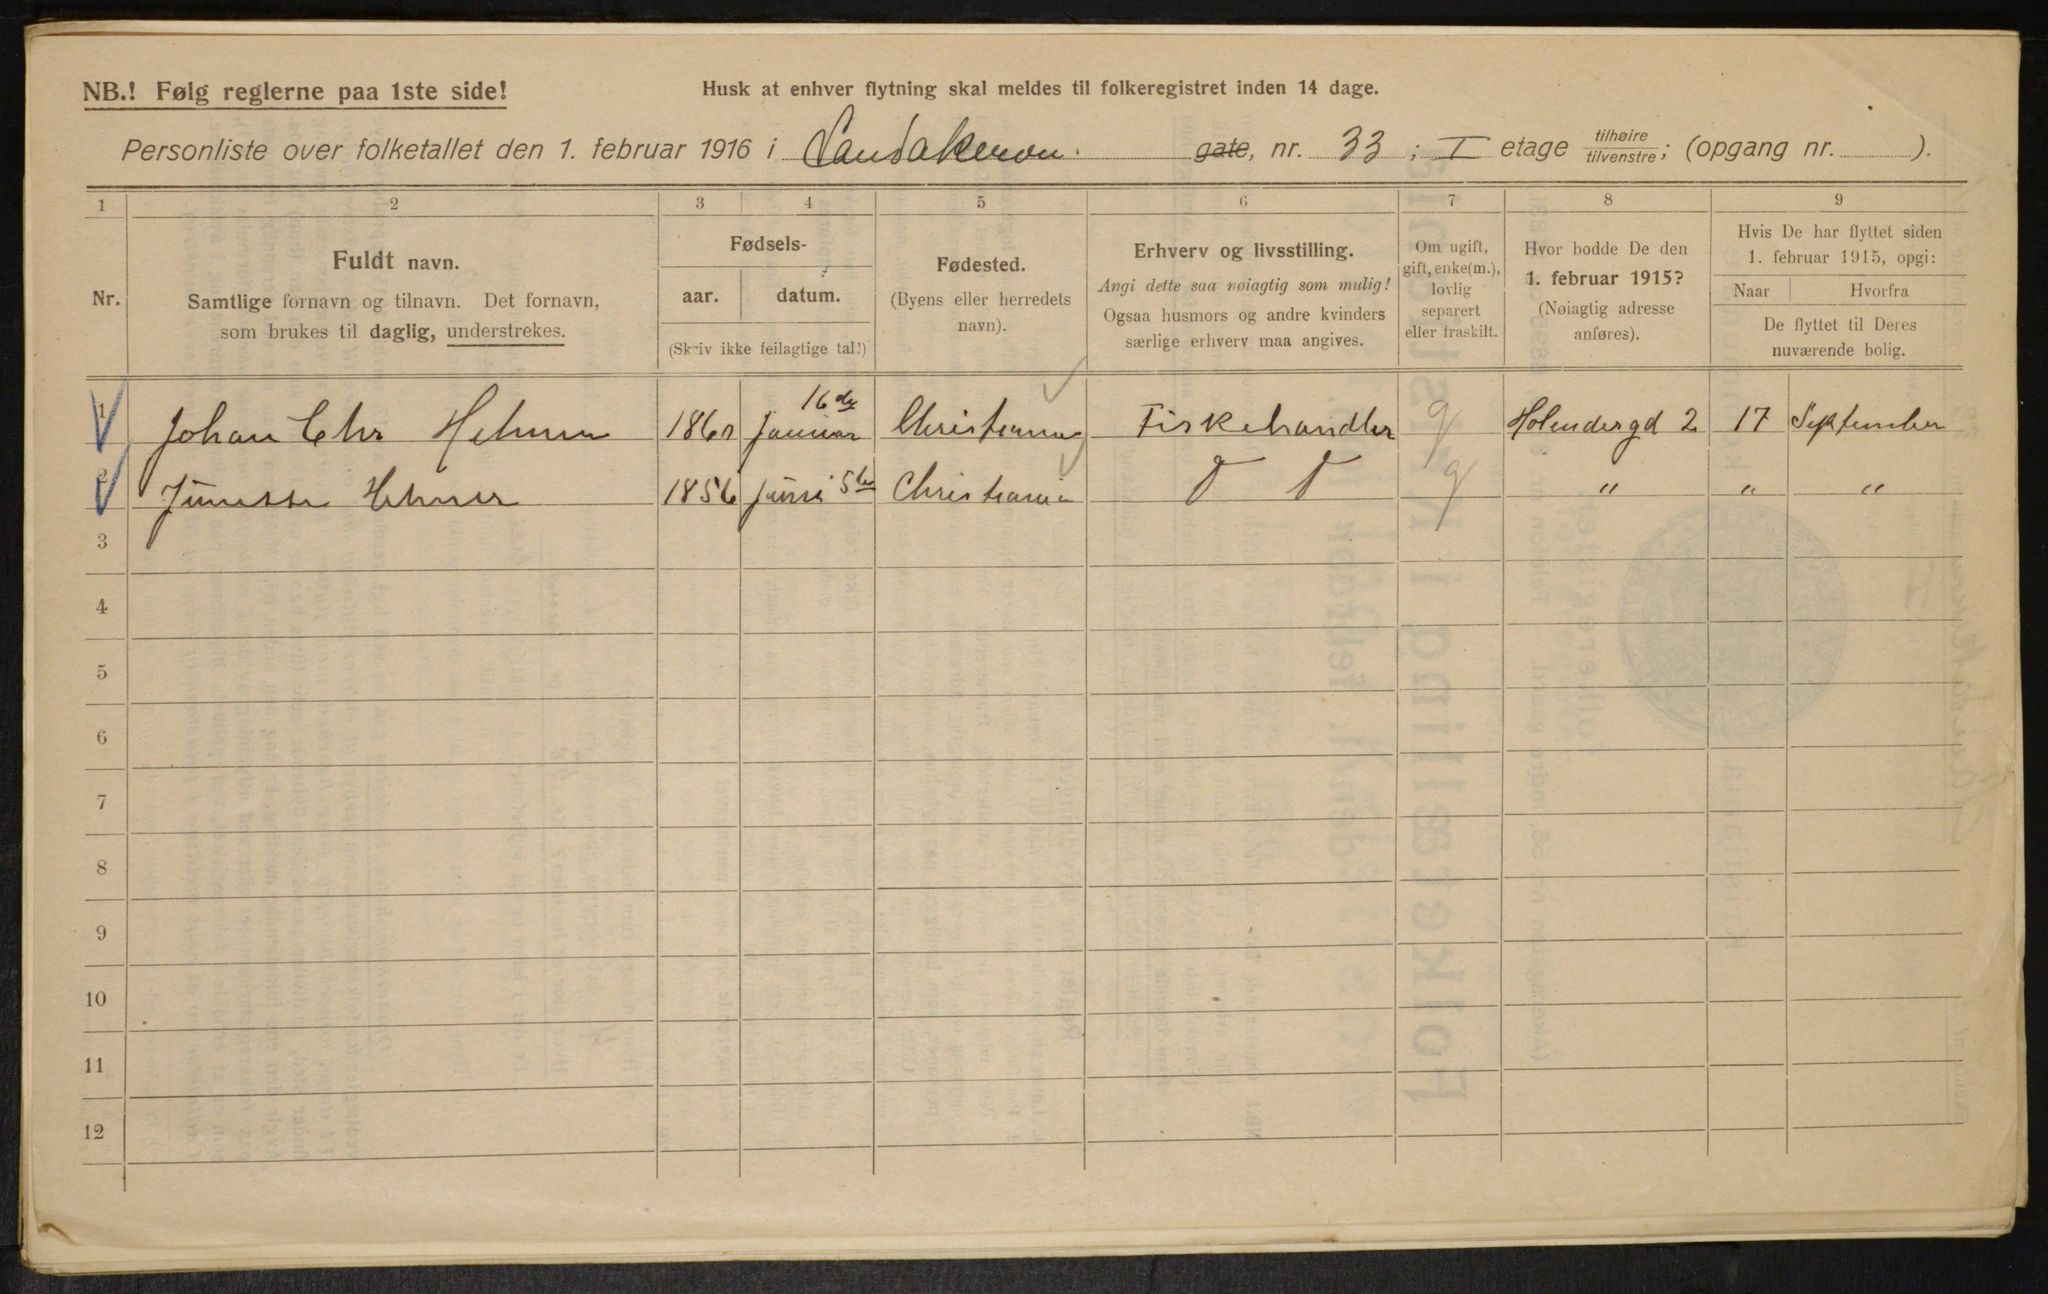 NB.! Følg reglerne paa 1ste side!
Husk at enhver flytning skal meldes til folkeregistret inden 14 dage.
Personliste over folketallet den 1. februar 1916 i Sandakerveien gate, nr. 33; I etage tilhøire/tilvenstre; (opgang nr. ).
1 2 3 4 5 6 7 8 9
Nr.
Fuldt navn.
Samtlige fornavn og tilnavn. Det fornavn,
som brukes til daglig, understrekes.
Fødsels-
aar. datum.
(Skriv ikke feilagtige tal!)
Fødested.
(Byens eller herredets
navn).
Erhverv og livsstilling.
Angi dette saa nøiagtig som mulig!
Ogsaa husmors og andre kvinders
særlige erhverv maa angives.
Om ugift,
gift, enke(m.),
lovlig
separert
eller fraskilt.
Hvor bodde De den
1. februar 1915?
(Nøiagtig adresse
anføres).
Hvis De har flyttet siden
1. februar 1915, opgi:
Naar Hvorfra
De flyttet til Deres
nuværende bolig.
1 Johan Chr 16de Januar Christiania Fiskehandler g Holendergd 2 17 September
2 1856 Juni 5te Christiania g " " "
3
4
5
6
7
8
9
10
11
12